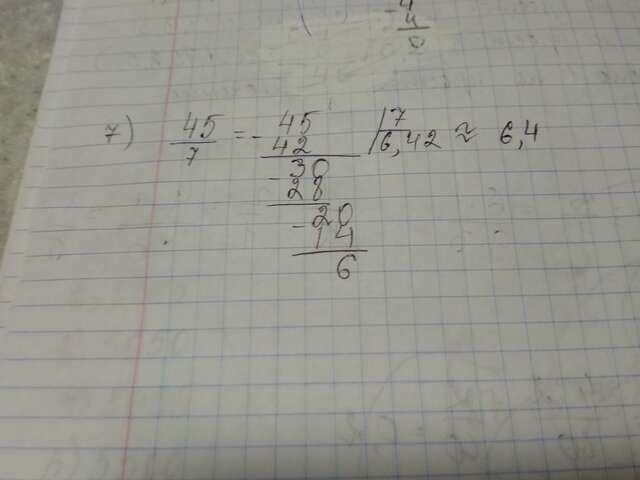 4
4
0
7) 45/7 = - 45 | 7
42 6,42 ≈ 6,4
- 30
28
- 20
14
6